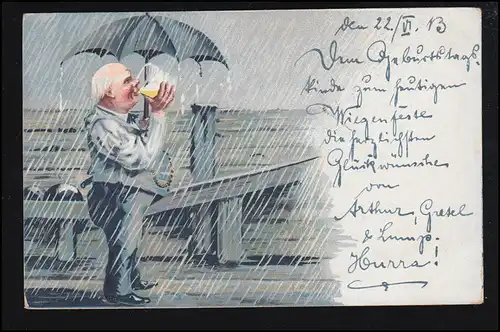 den 22./VI. 13
Dem Geburtstags-
kinde zum heutigen
Wiegenfeste
die herzlichsten
Glückwünsche
von
Arthur, Gretel
& Lump.
Hurra!